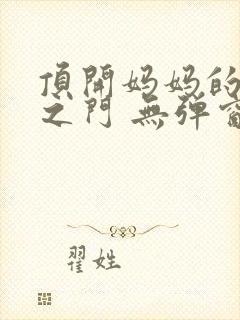 頂開妈妈的
之门 無弹窗
翟姓